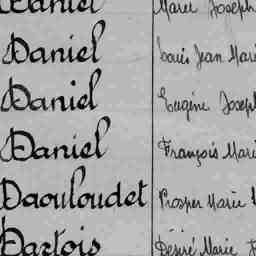 Daniel Marie Joseph
Daniel Louis Jean Marie
Daniel Eugène Joseph
Daniel François Marie
Daouloudet Prosper Marie
Dartois Désiré Marie